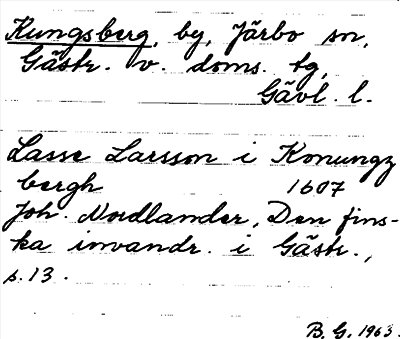 Kungsberg, by, Järbo sn,
Gästr. v. doms. tg,
Gävl. l.
Lasse Larsson i Konungz
bergh 1607
Joh. Nordlander, Den fins-
ka invandr. i Gästr.,
s. 13.
B. G. 1963.